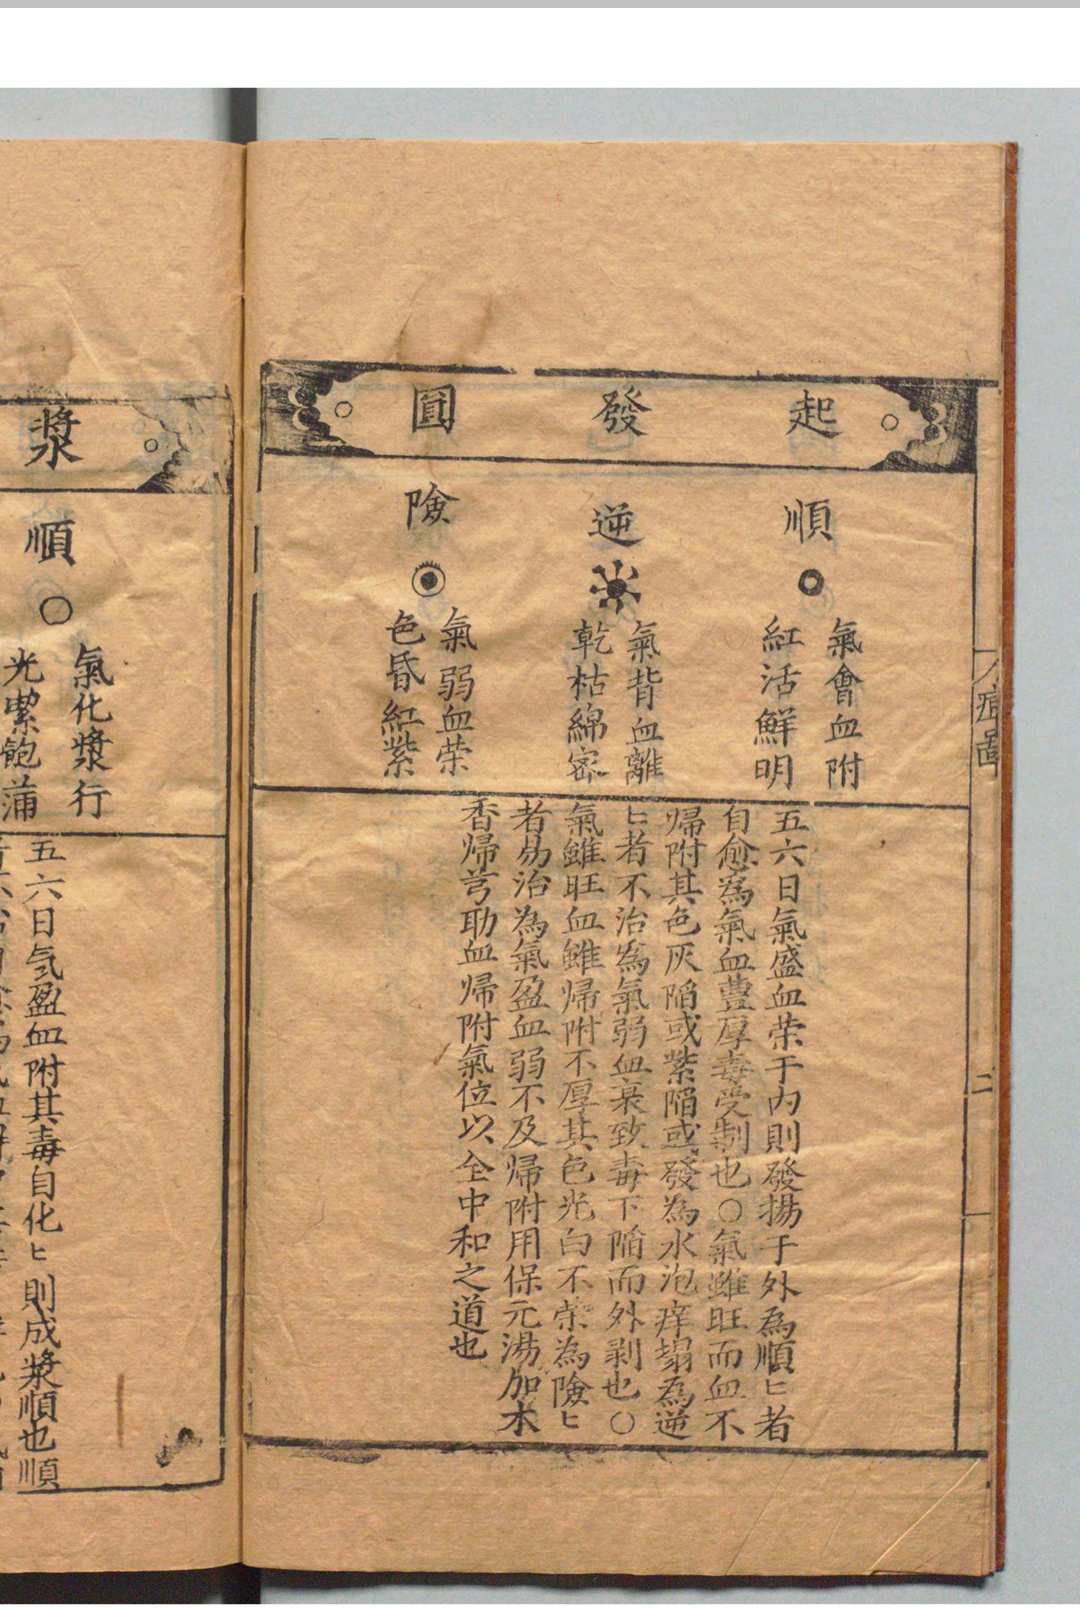 起發圓
順
氣會血附
紅活鮮明
逆
氣背血離
乾枯綿密
險
氣弱血荣
色昏紅紫
五六日氣盛血荣于内則發揚于外為順〻者
自愈為氣血豊厚毒受制也〇氣雖旺而血不
歸附其色灰陷或紫陷或發為水泡痒塌為逆
〻者不治為氣弱血衰致毒下陷而外剥也〇
氣雖旺血雖歸附不厚其色光白不荣為險〻
者易治為氣盈血弱不及歸附用保元湯加木
香歸芎助血歸附氣位以全中和之道也
痘啚
二
漿
順
氣化漿行
光潔飽蒲
五六日氣盈血附其毒自化〻則成漿順也順